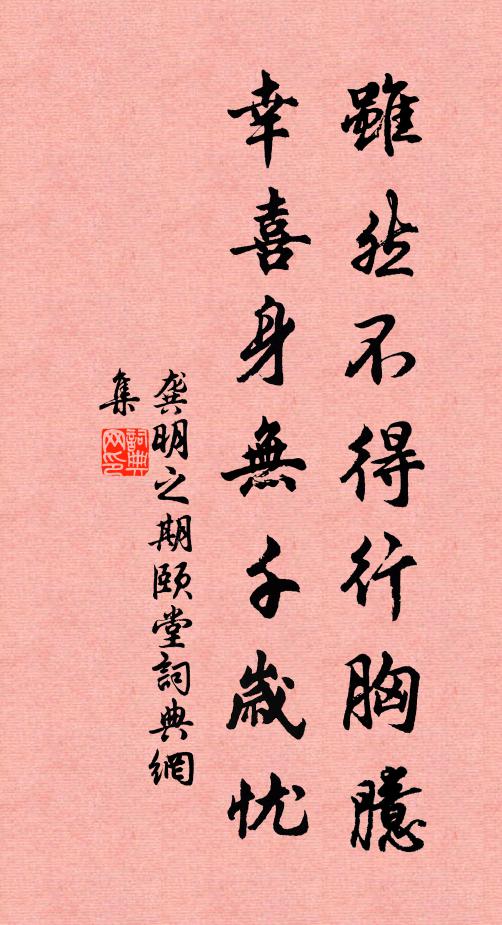 雖然不得行胸臆
幸喜身無千歲忧
龔明之期頤堂詞典網
集
詞典
网印